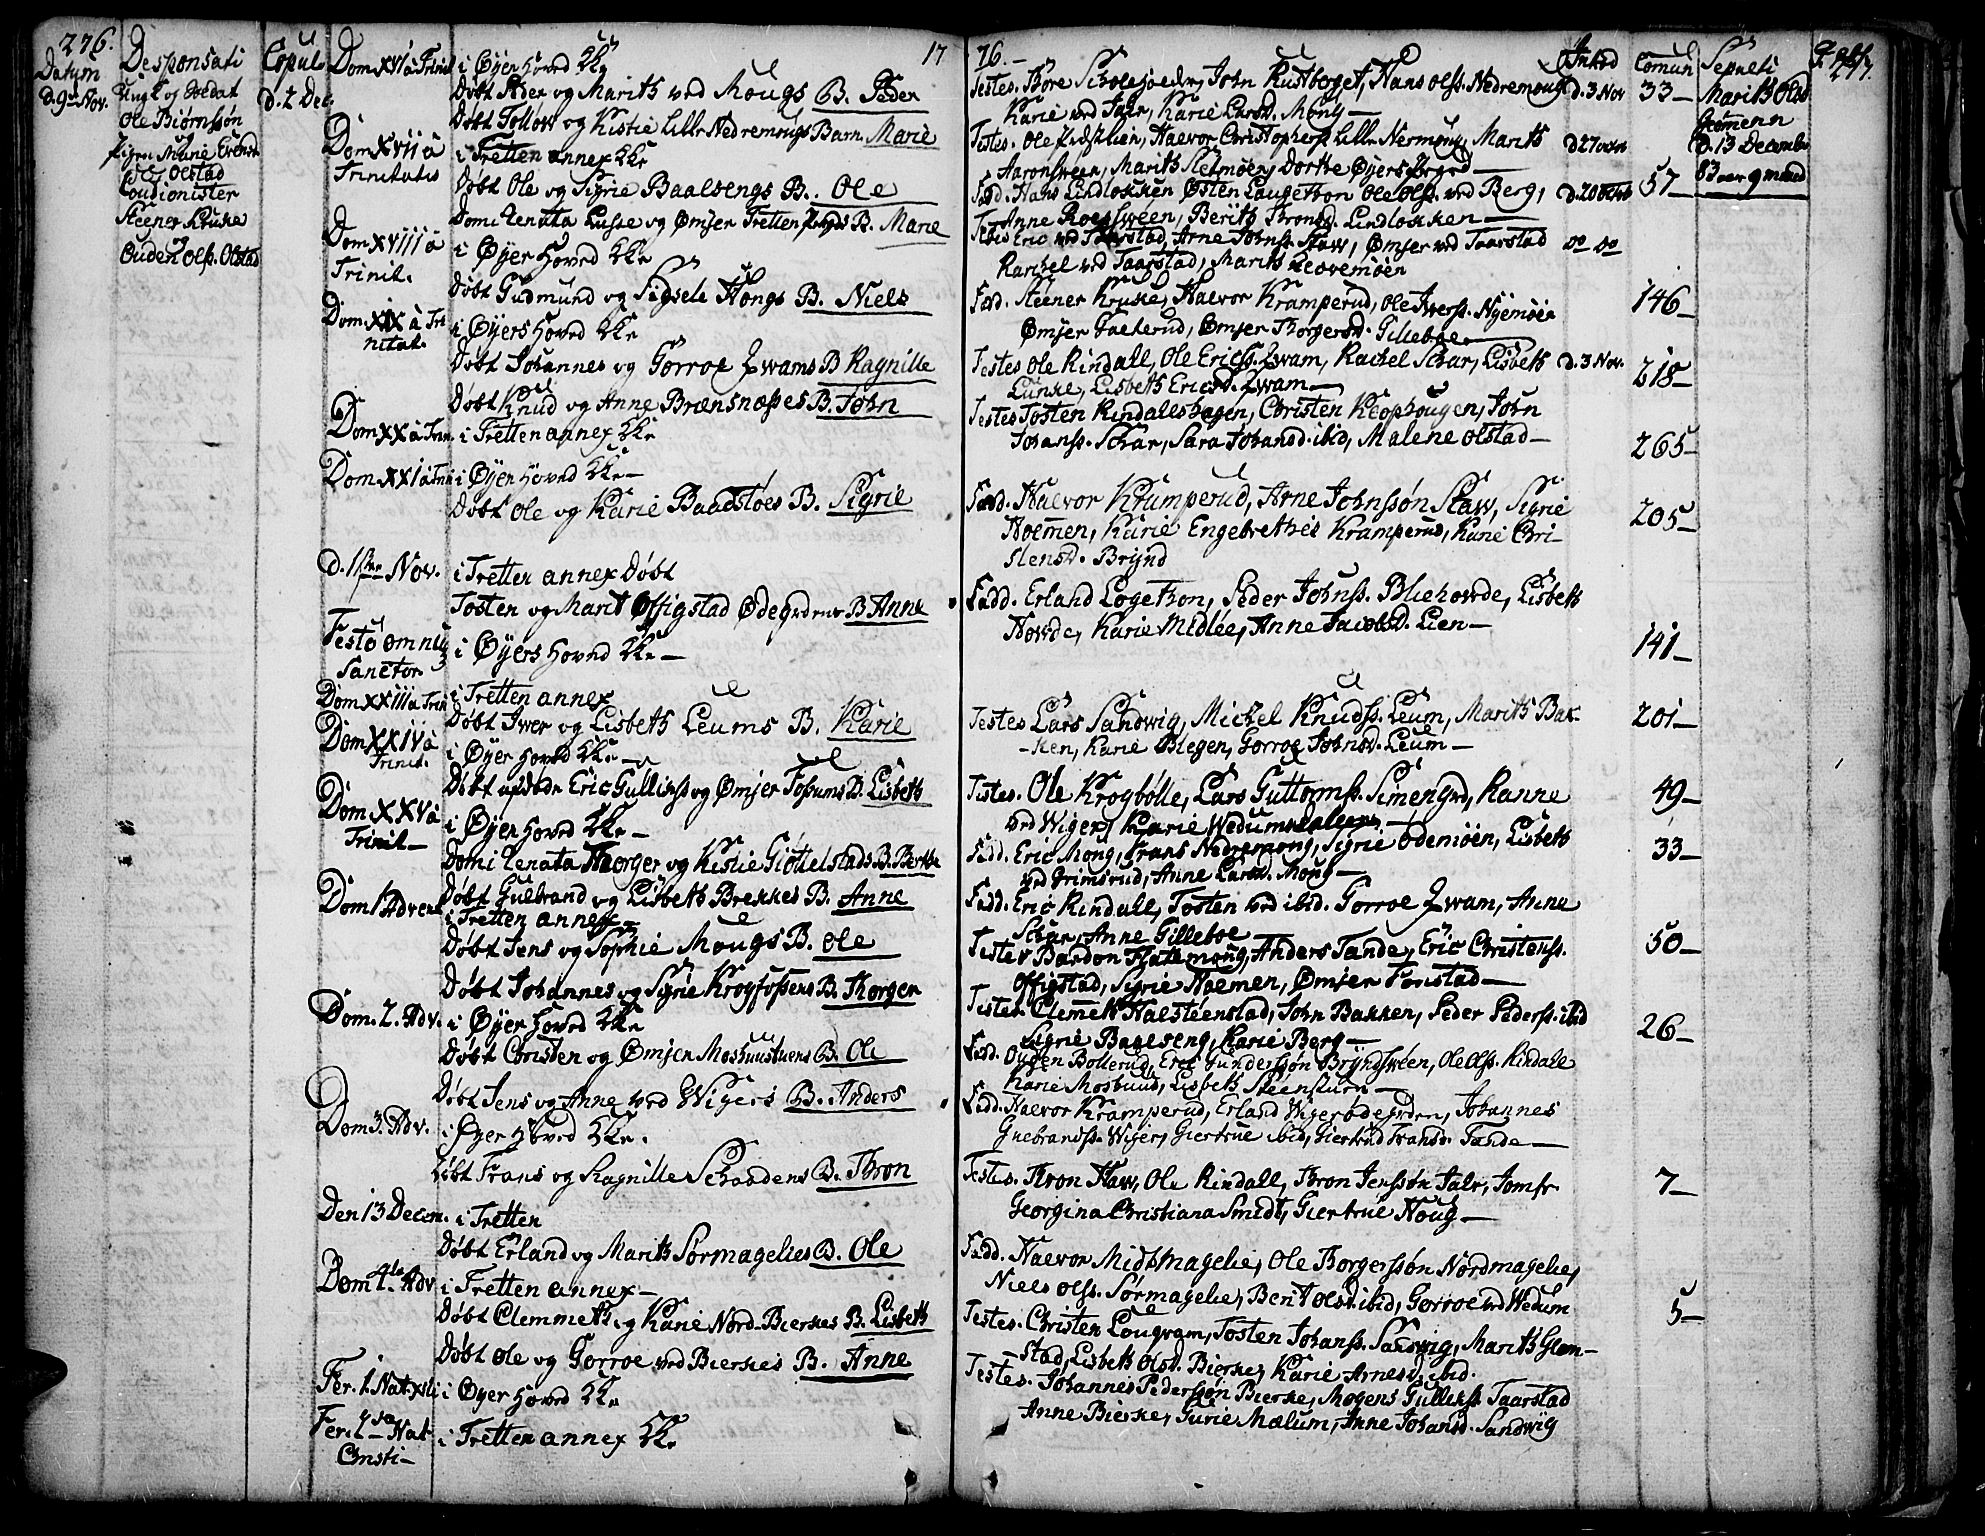 276.
Datum
D. 9de Nov.
Desponsati
Ungk. og Soldat
Ole Biørnssøn
Pigen Marie Evensd.
Olstad
Coutionister
Steener Kruke
Ouden Olss. Olstad
Copul
d. 2 Dec
17
Dom XVI à Trinit i Øyer Hoved Kke
Døbt Peder og Marith ved Mougs B. Peder
Døbt Tollow og Kistie Lille Nedremougs Barn Marie
Dom XVII à
Trinitatis
i Tretten annex Kke
Døbt Ole og Sigrie Baalsengs B. Ole
Domi Renata Lusse og Ømjer Tretten B. Marie
Dom XVIII à
Trinit.
i Øyer Hoved Kke
Døbt Gudmund og Sigsele Hongs B. Niels
Dom XIX à Tri
nitat.
i Øyers Hoved Kke
Døbt Johannes og Gorroe Zwams B Ragnille
Døbt Knud og Anne Brænsnæsses B. John
Dom XX à Trin. i Tretten annex Kke
Dom XXI à Trin i Øyer Hoved Kke
Døbt Ole og Karie Baadstøes B. Sigrie
D. 1ste Nov. i Tretten annex Døbt
Tosten og Marit Offigstad Ødegrdens B Anne
Festo omniũ
Sanctor
i Øyers Hoved Kke
Dom XXIII à Trin i Tretten annex
Døbt Iwer og Lisbeth Leums B. Karie
Dom XXIV à
Trinit.
i Øyer Hoved Kke
Døbt Eric Gullichss og Ømjer Fossums B. Lisbeth
Dom XXV à
Trinit
i Øyer Hoved Kke
Domi Renata Thorger og Kistie Giøttelstads B. Berthe
Dom 1 Advent Døbt Gulbrand og Lisbeth Brekkes B. Anne
i Tretten annex
Døbt Jens og Sophie Mougs B. Ole
Døbt Johannes og Sigrie Krogfossens B. Thorger
Dom. 2. Adv. i Øyer Hoved Kke
Døbt Christen og Ømjer Moshuustuens B. Ole
Døbt Jens og Anne ved Wigers B. Anders
Dom 3. Adv. i Øyer Hoved Kke.
Døbt Frans og Ragnille Schaadens B. Thron
Den 13 Decem. i Tretten
Døbt Erland og Marith Sørmagelies B. Ole
Dom 4te Adv i Tretten annex
Døbt Clemmeth og Karie Nord-Bierkes B. Lisbeth
Døbt Ole og Gorroe ved Bierkes B. Anne
Fer. 1. Nat. Xsti i Øyer Hoved Kke
Fer. 2da Nat
Christi
i Tretten annex Kke
76.
Testes. Tore Scholesjorden, John Rustberget, Hans Olss. Nedremoug
Karie ved Jalr, Karie Larsd. Moug
Testes. Ole Lien, Haevor Christophers Lille Nermoug, Marith
Aaronsveen, Marith Selmøen, Dorthe Øyers Præged
Fad. Hans Lindlokken Østen Laugethon Ole Olss. ved Berg,
Anne Roensveen, Berith Thronsd. Lindlokken
Testes Eric ved Taarstad, Arne Johnss. Staw, Ømjer ved Taarstad
Rachel ved Taarstad, Marith Kleovemøen
Fad. Steener Kruke, Haevor Kramperud, Ole Iverss. Nyemøen
Ømjer Gaeterud, Ømjer Thorgersd. Gilleboe
Testes Ole Rindall, Ole Ericss. Zwam, Rachel Schar, Lisbeth
Lunke, Lisbeth Ericsd. Zwam
Testes Tosten Rindalshagen, Christen Klophougen, John
Johanss. Schar, Sara Johansd. ibid, Malene Olstad
Fadd. Haevor Krumperud, Arne Johnssøn Staw, Sigrie
Hoemen, Karie Engebrethes Kramperud, Karie Chri-
stensd. Brynd
Fadd. Erland Logethon, Peder Johnss. Bliehovde, Lisbeth
Hovde, Karie Midlie, Anne Jacobsd. Lien
Testes Lars Sandwig, Michel Knudss. Leum, Marith Bak-
ken, Karie Blegen, Gorroe Johnsd. Leum
Testes. Ole Krogbølle, Lars Guttormss. Simengrd, Ranne
ved Wigers Karie Wedumsdalen
Fadd. Eric Moug, Frans Nedremoug, Sigrie Odemøen, Lisbeth
ved Grimsrud, Anne Larsd. Moug
Fadd. Eric Rindall, Tosten ved ibid. Gorroe Zwam, Anne
Schar, Anne Gilleboe
Testes Bardon Flatemoug, Anders Tande, Eric Christenss.
Offigstad, Sigrie Hoemen, Ømjer Fonstad
Testes. Clemmeth Haelsteenstad, John Bakken, Peder Pederss. ibid
Sigrie Baalseng, Karie Berg
Fad. Ougen Bollerud, Eric Gunderssøn Bryndsveen, Ole Olss. Rindall
Karie Mosbuud, Lisbeth Steenstuen
Fadd. Haevor Kramperud, Erland Wigerødegrden, Johannes
Guebrandss. Wiger, Giertrue ibid, Giertrud Fransd. Tande
Testes. Thron Haw, Ole Rindall, Thron Jenssøn Jalr, Jomfr
Georgina Christiana Smidt, Giertrue Houg
Fadd. Haevor Midtmagelie, Ole Thorgerssøn Nordmagelie,
Niels Olss. Sørmagelie, Berit Olsd. ibid, Gorroe ved Wedum
Testes. Christen Lougvam, Tosten Johanss. Sandwig, Marith Glem-
stad, Lisbeth Olsd. Bierke, Karie Arnesd. ibid.
Testes. Johannes Pederssøn Bierke, Mogens Gullikss. Taarstad
Anne Bierke, Gurie Mælum, Anne Johansd. Sandwig
Introd
d. 3 Nov
d 27 octob
d. 20 octob
do do
d. 3 Nov.
Comun
33
57
146
218
265
205
141
201
49
33
50
26
7
5
Sepulti
Marith Olsd
Hoemenn
d. 13 December
83 aar 9 maaned
277.